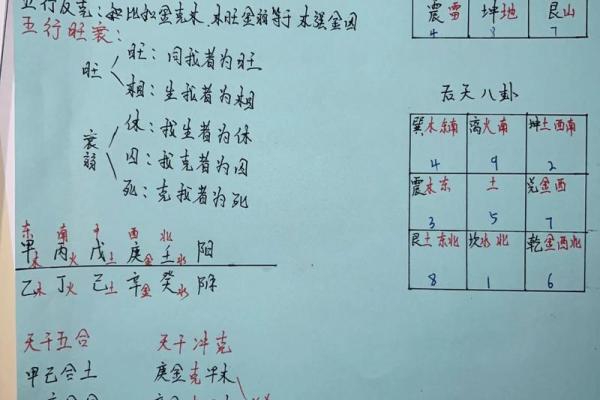 五行反克：如比如金克木，木旺金弱等于木强金囚
五行旺衰：
旺
旺：同我者为旺
相：生我者为相
衰弱
休：我生者为休
囚：我克者为囚
死：克我者为死
东 南 中 西 北
甲木 丙火 戊土 庚金 壬水 阳
乙木 丁火 己土 辛金 癸水 阴
天干五合
甲己合土
天干冲克
庚金克甲木
震雷 坤地 艮山
4 8 7
后天八卦
巽木东南 离火南 坤土西南
4 9 2
震木东 土 兑金西
3 5 7
艮土东北 坎水北 乾金西北
8 1 6